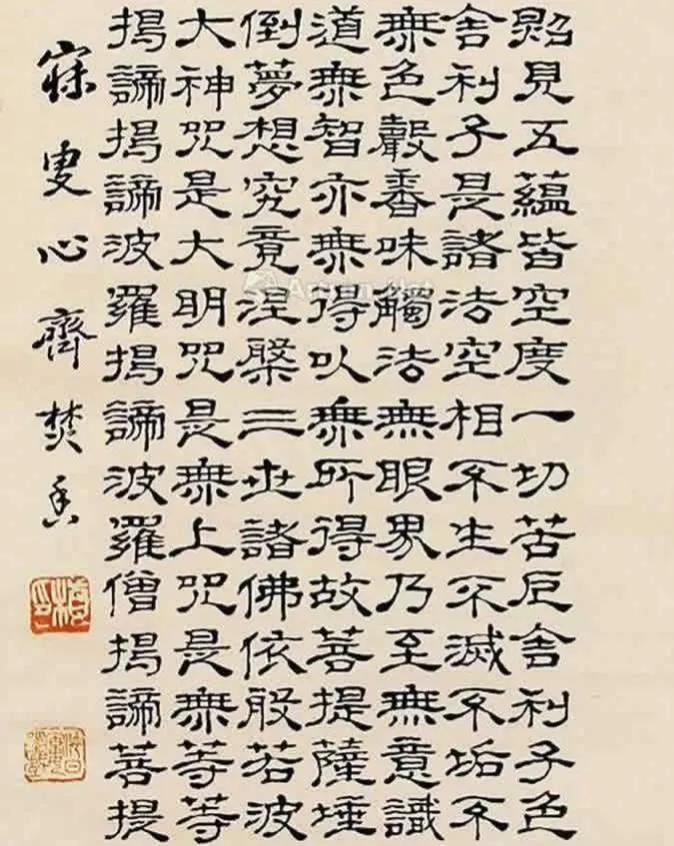 照見五蘊皆空度一切苦厄舍利子色
舍利子是諸法空相不生不滅不垢不
無色聲香味觸法無眼界乃至無意識
道無智亦無得以無所得故菩提薩埵
倒夢想究竟涅槃三世諸佛依般若波
大神咒是大明咒是無上咒是無等等
揭諦揭諦波羅揭諦波羅僧揭諦菩提
寐叟心齋焚香
Artron.Net